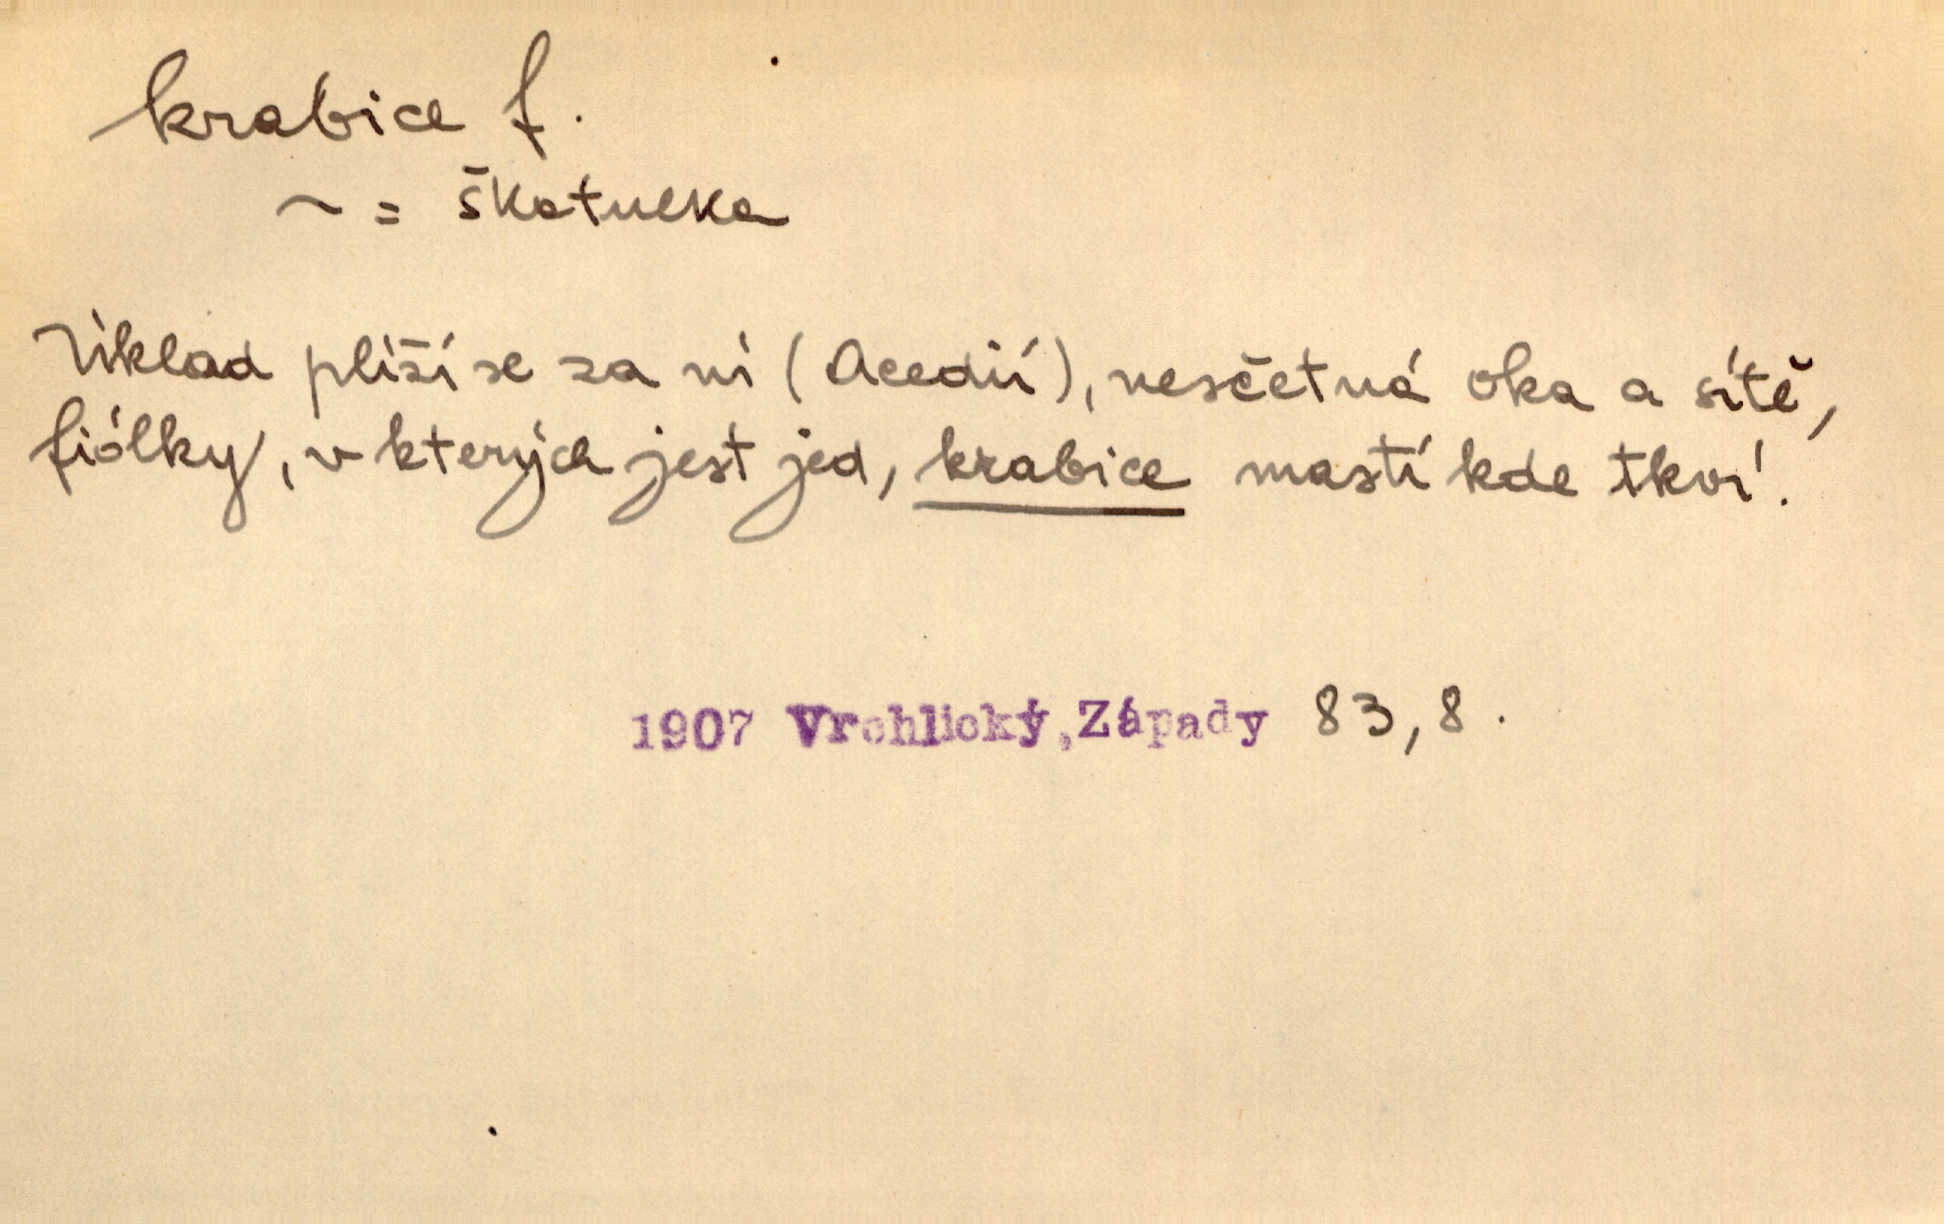 krabice f.
~ = škatulka
Úklad plíží se za ní (Acedií), nesčetná oka a sítě,
fiólky, v kterých jest jed, krabice mastí kde tkví.
1907 Vrchlický, Západy 83,8.